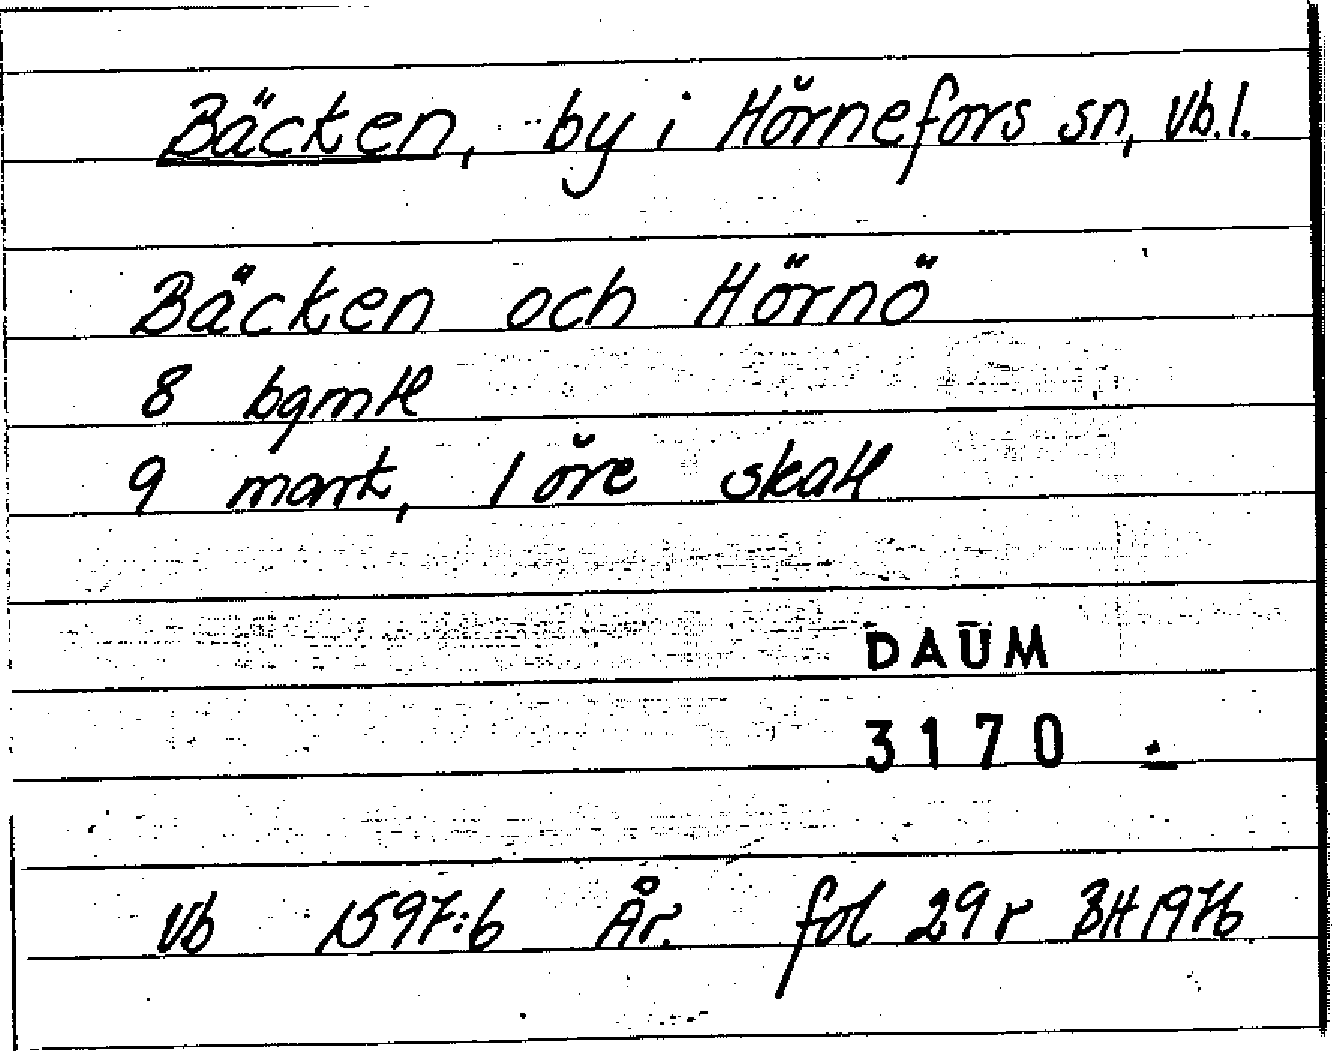 Bäcken, by i Hörnefors sn, Vb.l.
Bäcken och Hörnö
8 bgmtl
9 mark, 1 öre skatt
DAUM
3170
Vb 1597:6 År. fol 29 r BH 1976